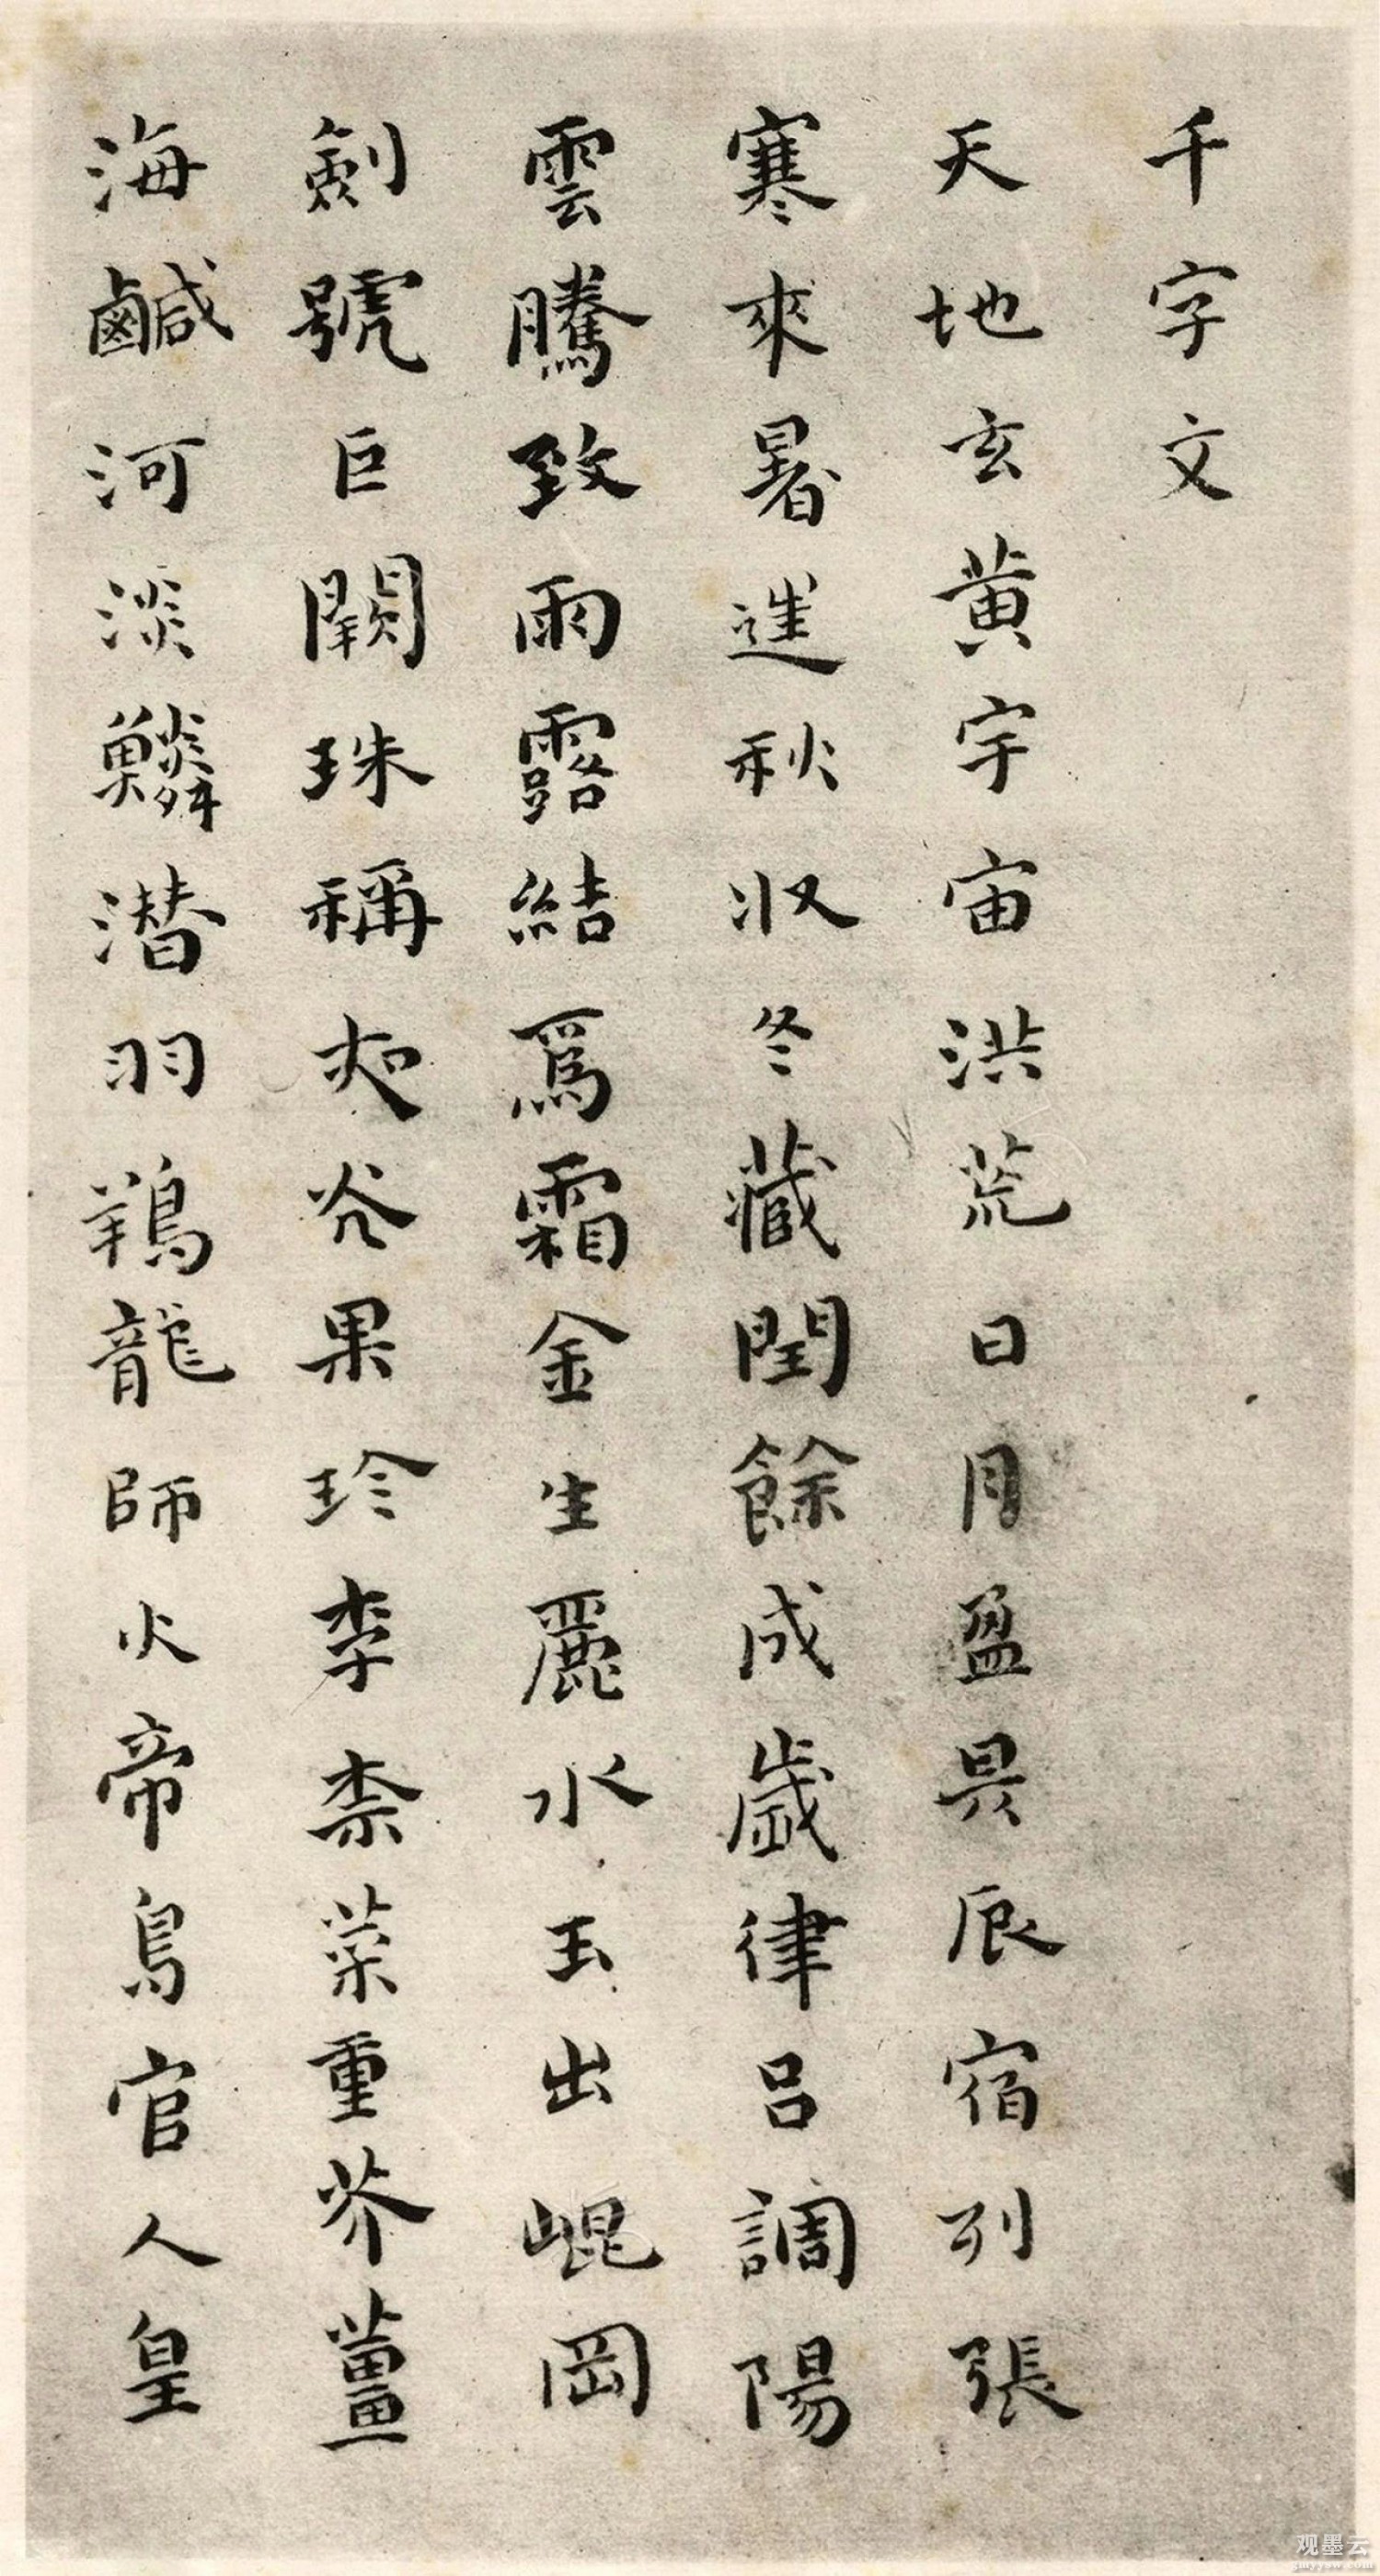 千字文
天地玄黃宇宙洪荒日月盈昃辰宿列張
寒來暑進秋收冬藏閏餘成歲律呂調陽
雲騰致雨露結爲霜金生麗水玉出崐岡
劍號巨闕珠稱夜光果珍李柰菜重芥薑
海鹹河淡鱗潛羽鵗龍師火帝鳥官人皇
观墨云